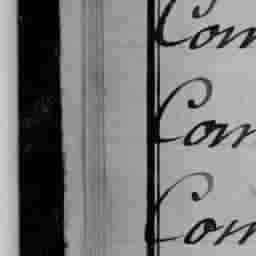 Com
Com
Com